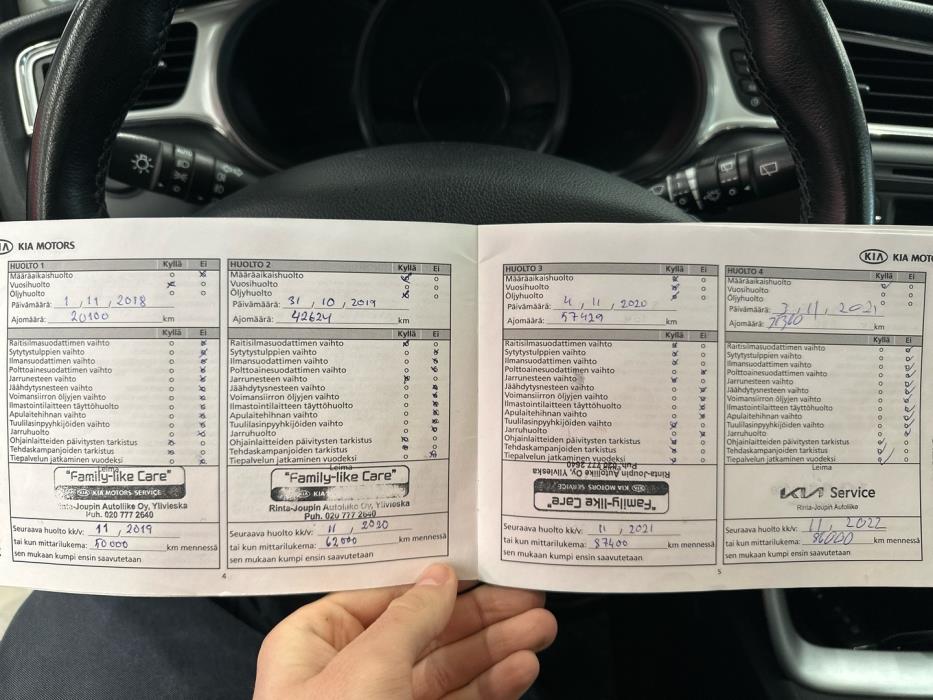 KIA MOTORS
HUOLTO 1 Kyllä Ei
Määräaikaishuolto
Vuosihuolto
Öljyhuolto
Päivämäärä: 1 , 11 , 2018
Ajomäärä: 20100 km
Kyllä Ei
Raitisilmasuodattimen vaihto
Sytytystulppien vaihto
Ilmansuodattimen vaihto
Polttoainesuodattimen vaihto
Jarrunesteen vaihto
Jäähdytysnesteen vaihto
Voimansiirron öljyjen vaihto
Ilmastointilaitteen täyttöhuolto
Apulaitehihnan vaihto
Tuulilasinpyyhkijöiden vaihto
Jarruhuolto
Ohjainlaitteiden päivitysten tarkistus
Tehdaskampanjoiden tarkistus
Tiepalvelun jatkaminen vuodeksi
Leima
"Family-like Care"
KIA MOTORS SERVICE
Rinta-Joupin Autoliike Oy, Ylivieska
Puh. 020 777 2640
Seuraava huolto kk/v: 11 , 2019
tai kun mittarilukema: 50 000 km mennessä
sen mukaan kumpi ensin saavutetaan
4
HUOLTO 2 Kyllä Ei
Määräaikaishuolto
Vuosihuolto
Öljyhuolto
Päivämäärä: 31 , 10 , 2019
Ajomäärä: 42624 km
Kyllä Ei
Raitisilmasuodattimen vaihto
Sytytystulppien vaihto
Ilmansuodattimen vaihto
Polttoainesuodattimen vaihto
Jarrunesteen vaihto
Jäähdytysnesteen vaihto
Voimansiirron öljyjen vaihto
Ilmastointilaitteen täyttöhuolto
Apulaitehihnan vaihto
Tuulilasinpyyhkijöiden vaihto
Jarruhuolto
Ohjainlaitteiden päivitysten tarkistus
Tehdaskampanjoiden tarkistus
Tiepalvelun jatkaminen vuodeksi
Leima
"Family-like Care"
KIA
Rinta-Joupin Autoliike Oy, Ylivieska
Puh. 020 777 2640
Seuraava huolto kk/v: 11 , 2020
tai kun mittarilukema: 62 000 km mennessä
sen mukaan kumpi ensin saavutetaan
HUOLTO 3 Kyllä Ei
Määräaikaishuolto
Vuosihuolto
Öljyhuolto
Päivämäärä: 4 , 11 , 2020
Ajomäärä: 57429 km
Kyllä Ei
Raitisilmasuodattimen vaihto
Sytytystulppien vaihto
Ilmansuodattimen vaihto
Polttoainesuodattimen vaihto
Jarrunesteen vaihto
Jäähdytysnesteen vaihto
Voimansiirron öljyjen vaihto
Ilmastointilaitteen täyttöhuolto
Apulaitehihnan vaihto
Tuulilasinpyyhkijöiden vaihto
Jarruhuolto
Ohjainlaitteiden päivitysten tarkistus
Tehdaskampanjoiden tarkistus
Tiepalvelun jatkaminen vuodeksi
Puh. 020 777 2640
Rinta-Joupin Autoliike Oy, Ylivieska
KIA MOTORS SERVICE
"Family-like Care"
Seuraava huolto kk/v: 11 , 2021
tai kun mittarilukema: 87400 km mennessä
sen mukaan kumpi ensin saavutetaan
5
KIA KIA MOTO
HUOLTO 4 Kyllä Ei
Määräaikaishuolto
Vuosihuolto
Öljyhuolto
Päivämäärä: 3 , 11 , 2021
Ajomäärä: km
Kyllä Ei
Raitisilmasuodattimen vaihto
Sytytystulppien vaihto
Ilmansuodattimen vaihto
Polttoainesuodattimen vaihto
Jarrunesteen vaihto
Jäähdytysnesteen vaihto
Voimansiirron öljyjen vaihto
Ilmastointilaitteen täyttöhuolto
Apulaitehihnan vaihto
Tuulilasinpyyhkijöiden vaihto
Jarruhuolto
Ohjainlaitteiden päivitysten tarkistus
Tehdaskampanjoiden tarkistus
Tiepalvelun jatkaminen vuodeksi
Leima
KIA Service
Rinta-Joupin Autoliike
Seuraava huolto kk/v: 11 , 2022
tai kun mittarilukema: 86000 km mennessä
sen mukaan kumpi ensin saavutetaan